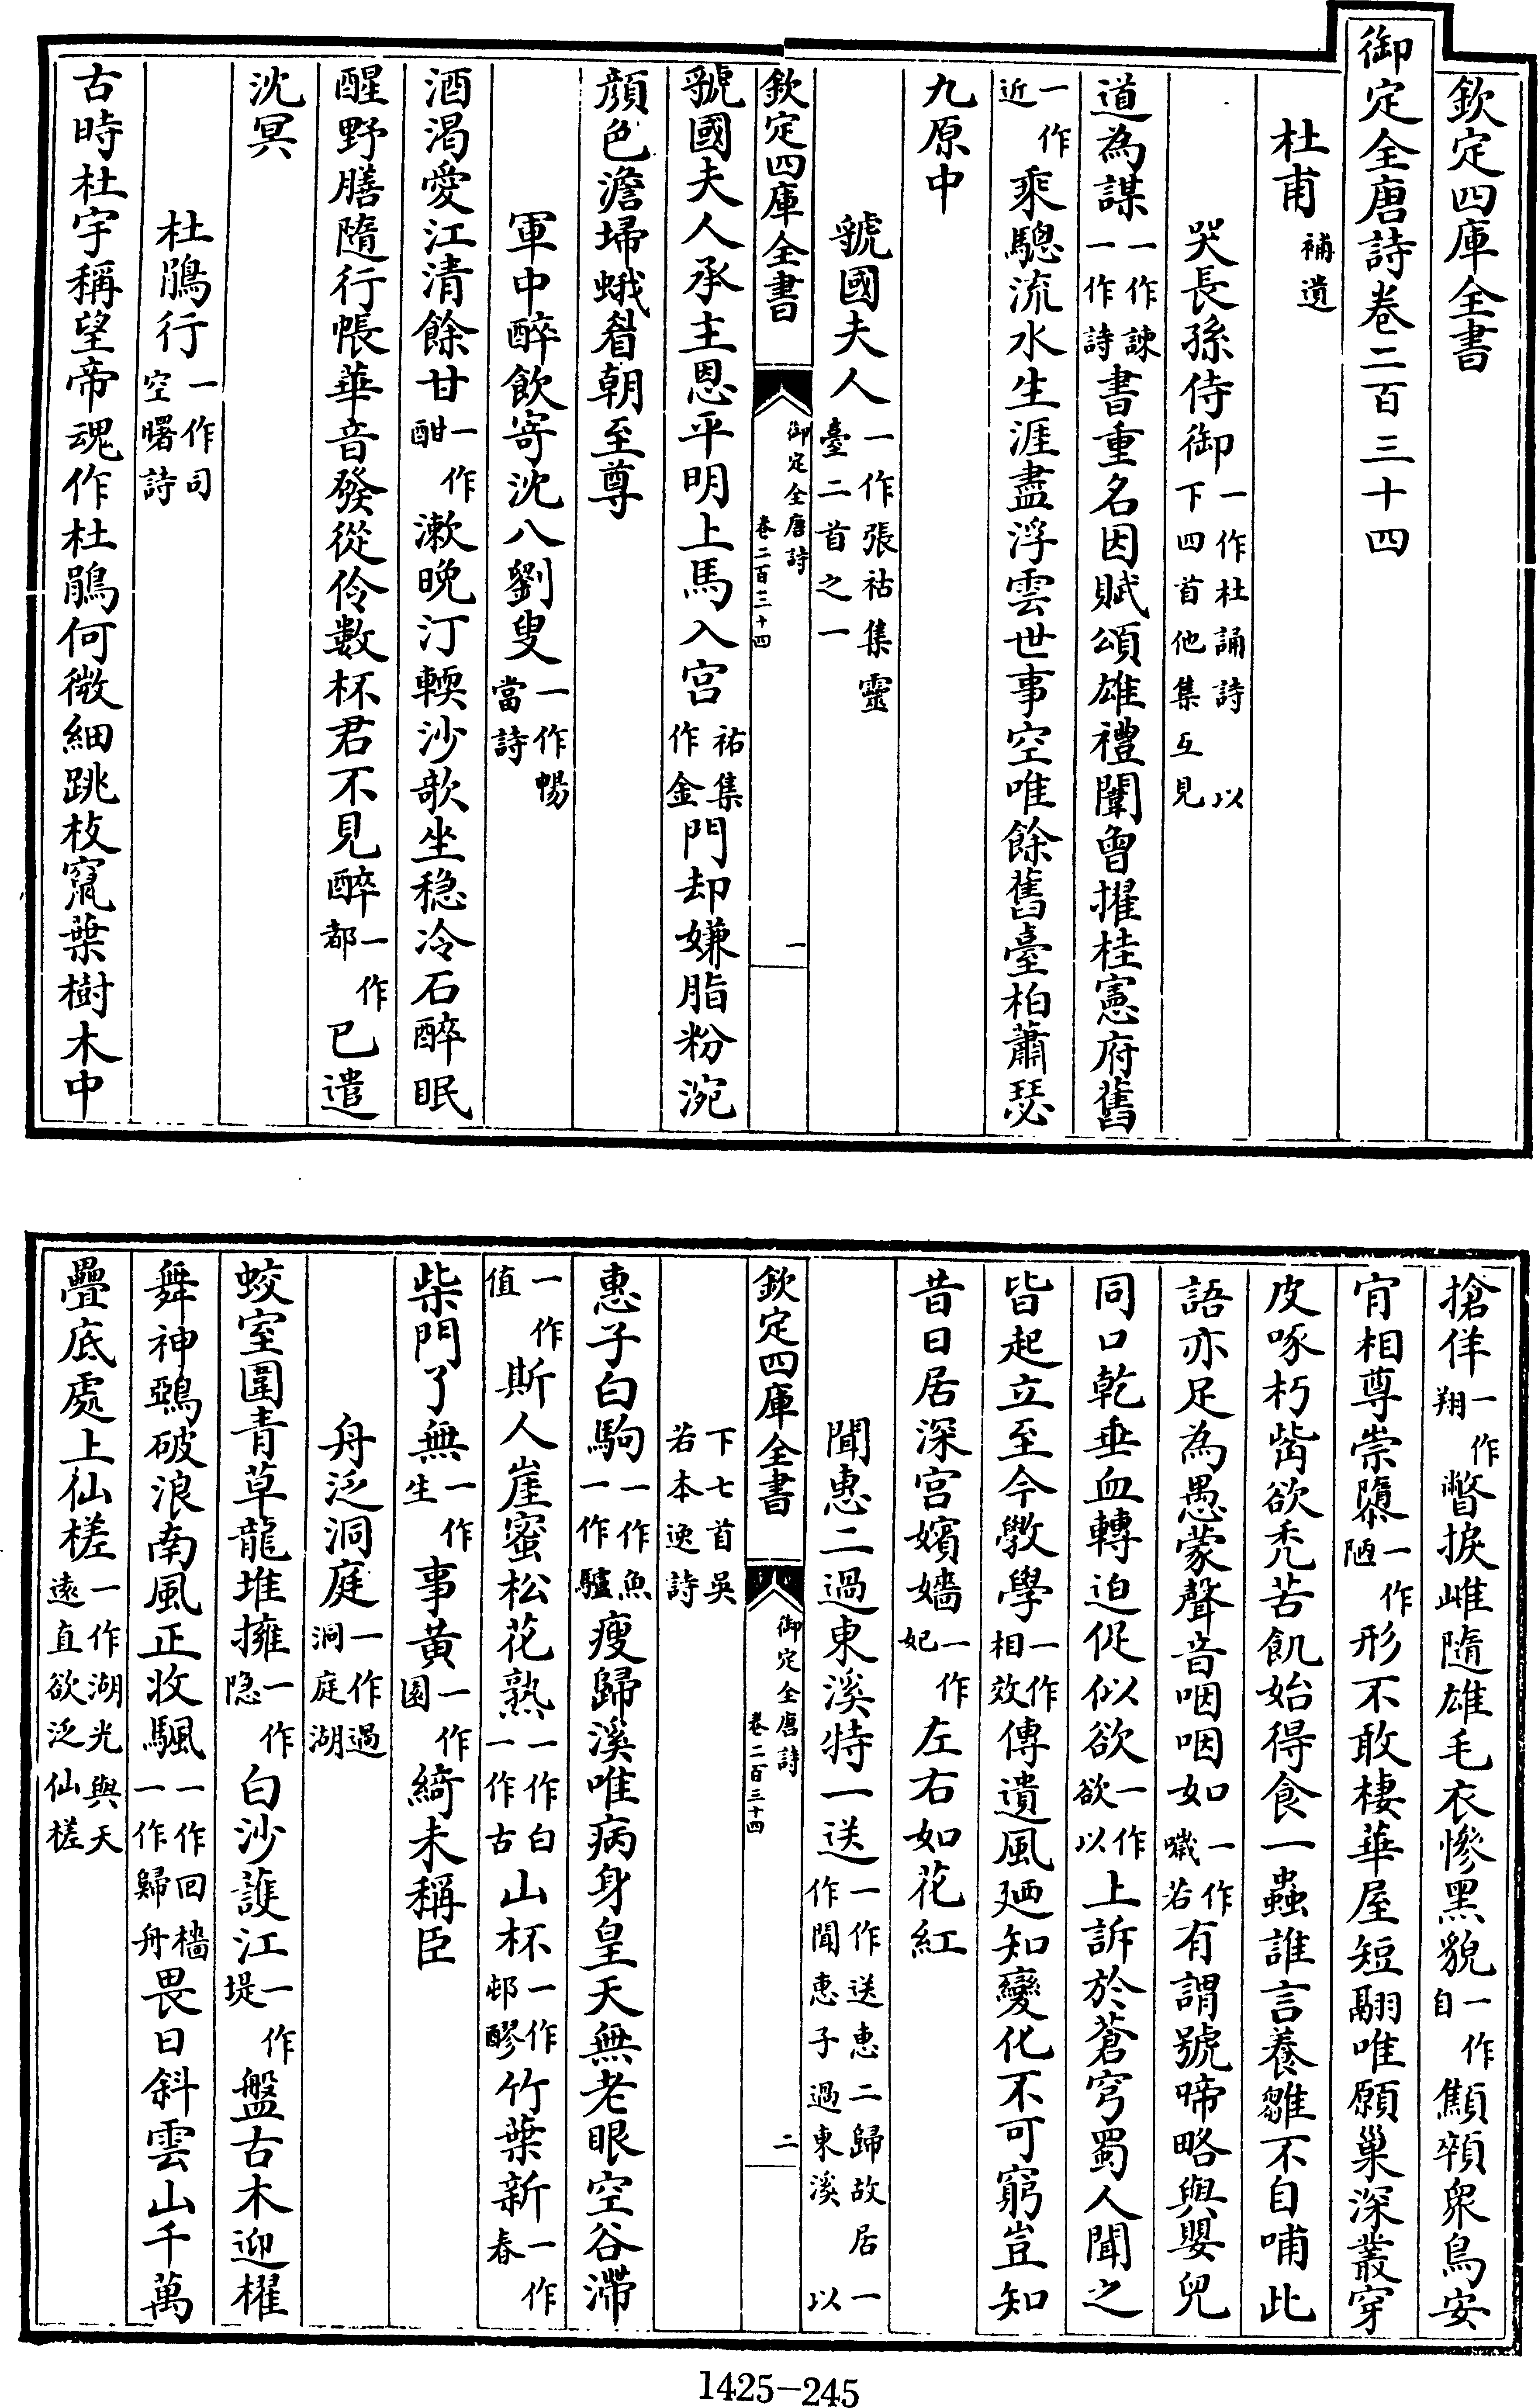 欽定四庫全書
御定全唐詩卷二百三十四
杜甫補遺
哭長孫侍御一作杜誦詩以下四首他集互見
道為謀一作諫一作詩書重名因賦頌雄禮闈曾擢桂憲府舊
一作近乘驄流水生涯盡浮雲世事空唯餘舊臺柏蕭瑟
九原中
虢國夫人一作張祜集靈臺二首之一
欽定四庫全書
御定全唐詩
卷二百三十四
一
虢國夫人承主恩平明上馬入宮祐集作金門却嫌脂粉涴
顏色澹埽蛾眉朝至尊
軍中醉飲寄沈八劉叟一作暢當詩
酒渴愛江清餘甘一作酣漱晚汀輭沙欹坐穩冷石醉眠
醒野膳隨行帳華音發從伶數杯君不見醉一作都已遣
沈冥
杜鵑行一作司空曙詩
古時杜宇稱望帝魂作杜鵑何微細跳枝竄葉樹木中
搶佯一作翔瞥捩雌隨雄毛衣慘黑貌一作自顦顇衆鳥安
肎相尊崇隳一作陋形不敢棲華屋短翮唯願巢深叢穿
皮啄朽觜欲禿苦飢始得食一蟲誰言養雛不自哺此
語亦足為愚蒙聲音咽咽如一作噦若有謂號啼略與嬰兒
同口乾垂血轉迫促似欲一作欲以上訴於蒼穹蜀人聞之
皆起立至今斆學一作相效傳遺風廼知變化不可窮豈知
昔日居深宮嬪嬙一作妃左右如花紅
聞惠二過東溪特一送一作送惠二歸故居一作聞惠子過東溪以
欽定四庫全書
御定全唐詩
卷二百三十四
二
下七首吳若本逸詩
惠子白駒一作魚一作驢瘦歸溪唯病身皇天無老眼空谷滯
一作值斯人崖蜜松花熟一作白一作古山杯一作邨醪竹葉新一作春
柴門了無一作生事黃一作園綺未稱臣
舟泛洞庭一作過洞庭湖
蛟室圍青草龍堆擁一作隐白沙護江一作堤盤古木迎櫂
舞神鵶破浪南風正收颿一作回檣一作歸舟畏日斜雲山千萬
疊底處上仙槎一作湖光與天遠直欲泛仙槎
1425-245